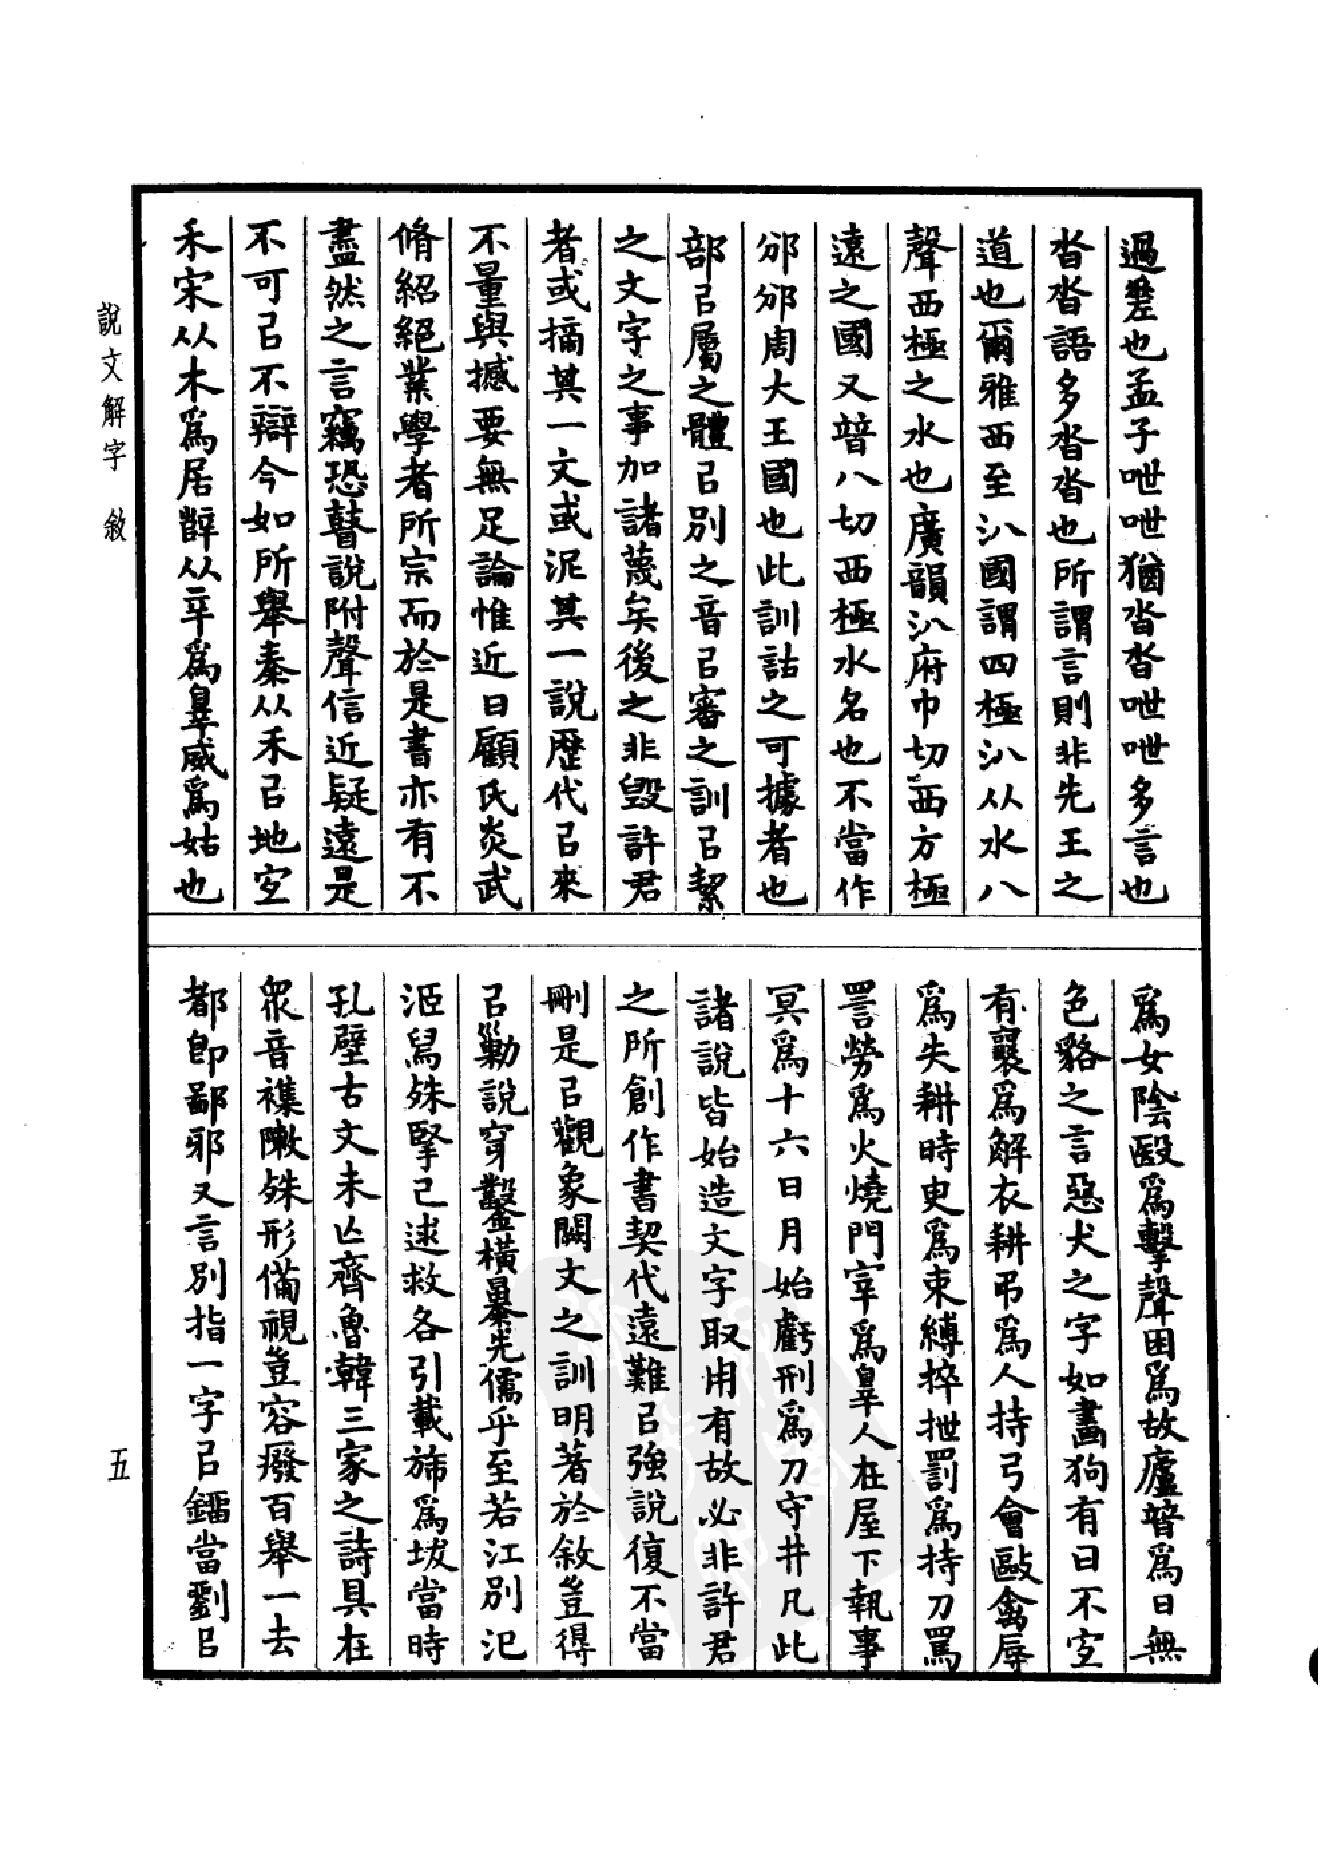 過差也孟子呭呭猶沓沓呭呭多言也
沓沓語多沓沓也所謂言則非先王之
道也爾雅西至汃國謂四極汃从水八
聲西極之水也廣韻汃府巾切西方極
遠之國又普八切西極水名也不當作
邠邠周大王國也此訓詁之可據者也
部㠯屬之體㠯別之音㠯審之訓㠯絜
之文字之事加諸蔑矣後之非毀許君
者或摘其一文或泥其一說歷代㠯來
不量與撼要無足論惟近日顧氏炎武
脩紹絕業學者所宗而於是書亦有不
盡然之言竊恐瞽說附聲信近疑遠是
不可㠯不辯今如所舉秦从禾㠯地宜
禾宋从木爲居辥从辛爲辠威爲姑也
爲女陰殹爲擊聲困爲故廬普爲日無
色貉之言惡犬之字如畫狗有日不宜
有襄爲解衣耕弔爲人持弓會敺禽辱
爲失耕時臾爲束縛捽抴罰爲持刀罵
詈勞爲火燒門宰爲辠人在屋下執事
冥爲十六日月始虧刑爲刀守井凡此
諸說皆始造文字取用有故必非許君
之所創作書契代遠難㠯強說復不當
刪是㠯觀象闕文之訓明著於敘豈得
㠯勦說穿鑿橫暴先儒乎至若江別汜
洍舃殊掔己逑救各引載㫍爲坺當時
孔壁古文未亾齊魯韓三家之詩具在
衆音襍㪚殊形備視豈容癈百舉一去
都郎鄙邪又言別指一字㠯鎦當劉㠯
說文解字 敘
五